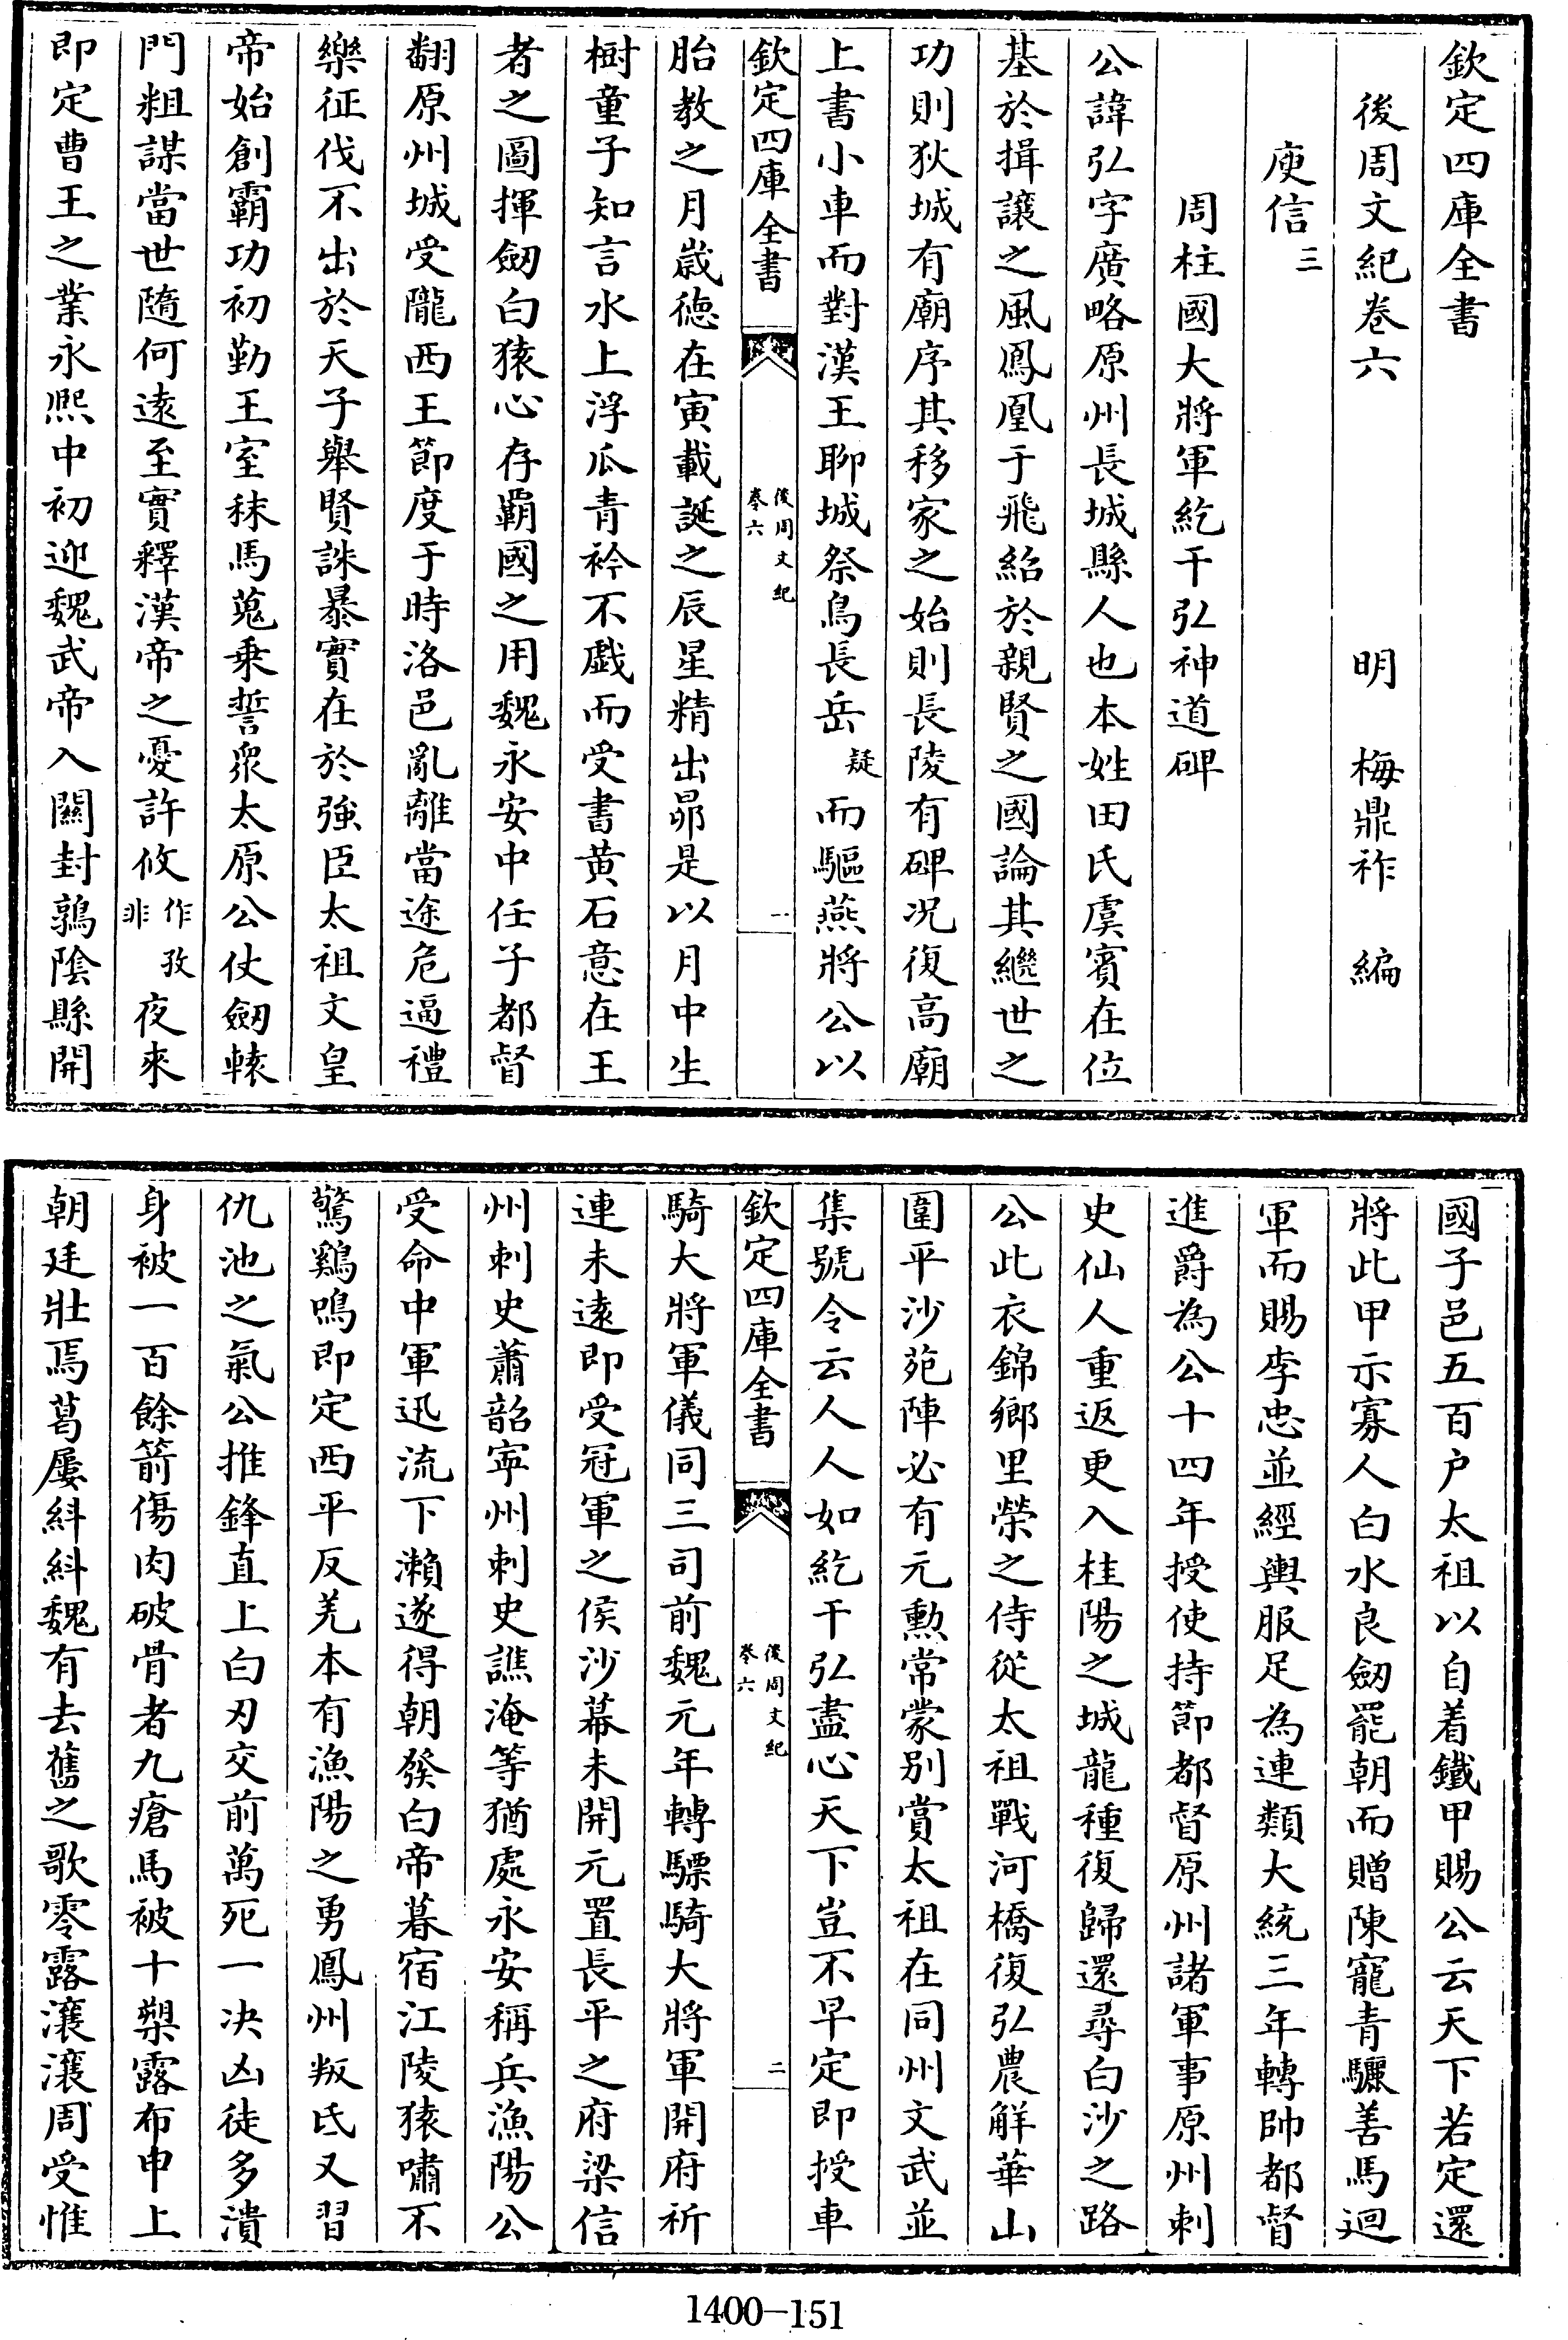 欽定四庫全書
後周文紀卷六
明　梅鼎祚　編
庾信三
周柱國大將軍紇干弘神道碑
公諱弘字廣略原州長城縣人也本姓田氏虞賓在位
基於揖讓之風鳳凰于飛紹於親賢之國論其繼世之
功則狄城有廟序其移家之始則長陵有碑况復高廟
上書小車而對漢王聊城祭鳥長岳疑而驅燕將公以
欽定四庫全書
後周文紀
卷六
一
胎教之月歲德在寅載誕之辰星精出昴是以月中生
樹童子知言水上浮瓜青衿不戲而受書黄石意在王
者之圖揮劒白猿心存霸國之用魏永安中任子都督
翻原州城受隴西王節度于時洛邑亂離當途危逼禮
樂征伐不出於天子舉賢誅暴實在於強臣太祖文皇
帝始創霸功初勤王室秣馬蒐乗誓衆太原公仗劒轅
門粗謀當世隨何逺至實釋漢帝之憂許攸作孜非夜來
即定曹王之業永熙中初迎魏武帝入關封鶉陰縣開
國子邑五百户太祖以自着鐵甲賜公云天下若定還
將此甲示寡人白水良劒罷朝而贈陳寵青驪善馬迴
軍而賜李忠並經輿服足為連類大統三年轉帥都督
進爵為公十四年授使持節都督原州諸軍事原州刺
史仙人重返更入桂陽之城龍種復歸還尋白沙之路
公此衣錦鄉里榮之侍從太祖戰河橋復弘農解華山
圍平沙苑陣必有元勲常蒙别賞太祖在同州文武並
集號令云人人如紇干弘盡心天下豈不早定即授車
欽定四庫全書
後周文紀
卷六
二
騎大將軍儀同三司前魏元年轉驃騎大將軍開府祈
連未逺即受冠軍之侯沙幕未開元置長平之府梁信
州刺史蕭韶寧州刺史譙淹等猶處永安稱兵漁陽公
受命中軍迅流下瀨遂得朝發白帝暮宿江陵猿嘯不
驚鷄鳴即定西平反羌本有漁陽之勇鳳州叛氐又習
仇池之氣公推鋒直上白刃交前萬死一决凶徒多潰
身被一百餘箭傷肉破骨者九瘡馬被十槊露布申上
朝廷壯焉葛屢糾糾魏有去舊之歌零露瀼瀼周受惟
1400-151